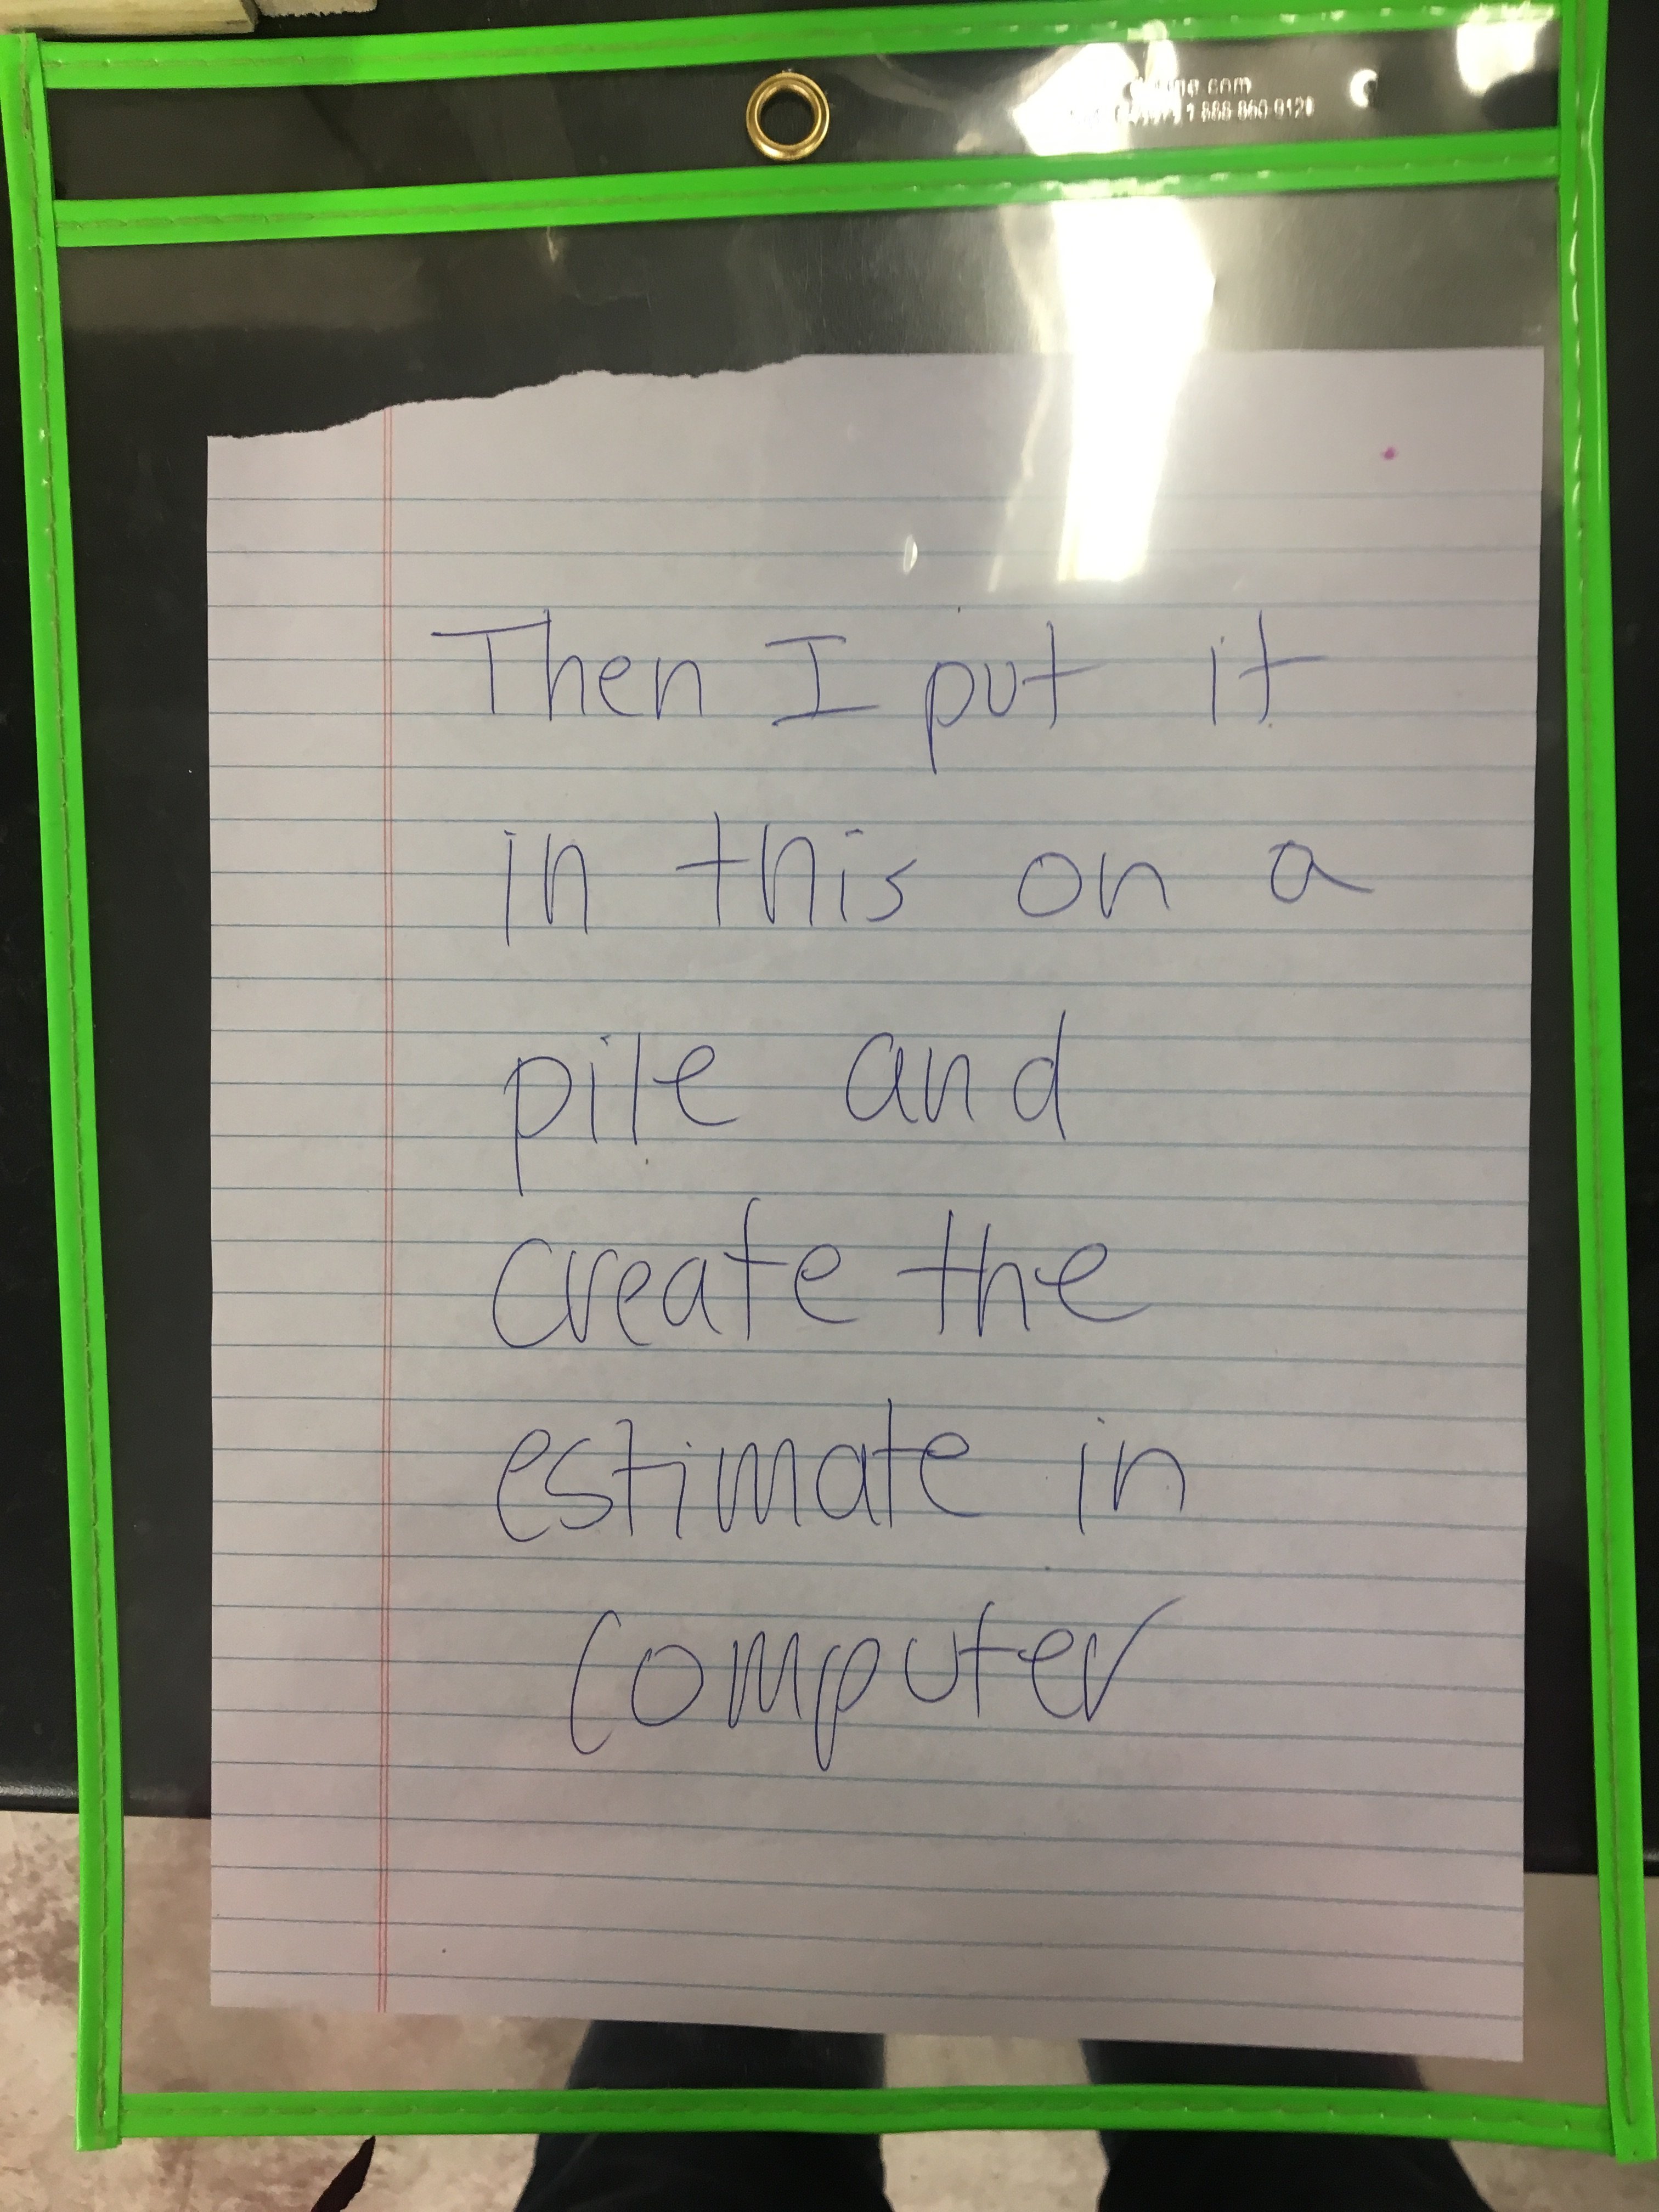 1-888-860-9121
Then I put it
in this on a
pile and
create the
estimate in
computer